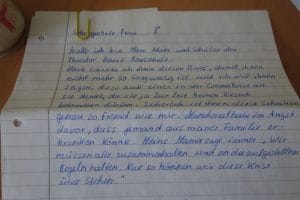 Sehr geehrte Frau
hallo ich bin Marc Marx und Schüler der
Theodor Heuss Realschule.
Mark schreibe ich Ihnen diesen Brief, damit Ihnen
nicht mehr so langweilig ist und ich will Ihnen
zeigen, dass auch einer in der Coronakrise an
sie denkt, da sie ja zur Zeit keinen Besuch
bekommen dürfen. Sicherlich ist Ihnen diese Situation
genau so fremd wie mir. Manchmal habe ich Angst
davor, dass jemand aus meiner Familie er-
kranken könnte. Meine Mama sagt immer: "Wir
müssen alle zusammenhalten und an die aufgestellten
Regeln halten. Nur so können wir diese Krise
über stehen."